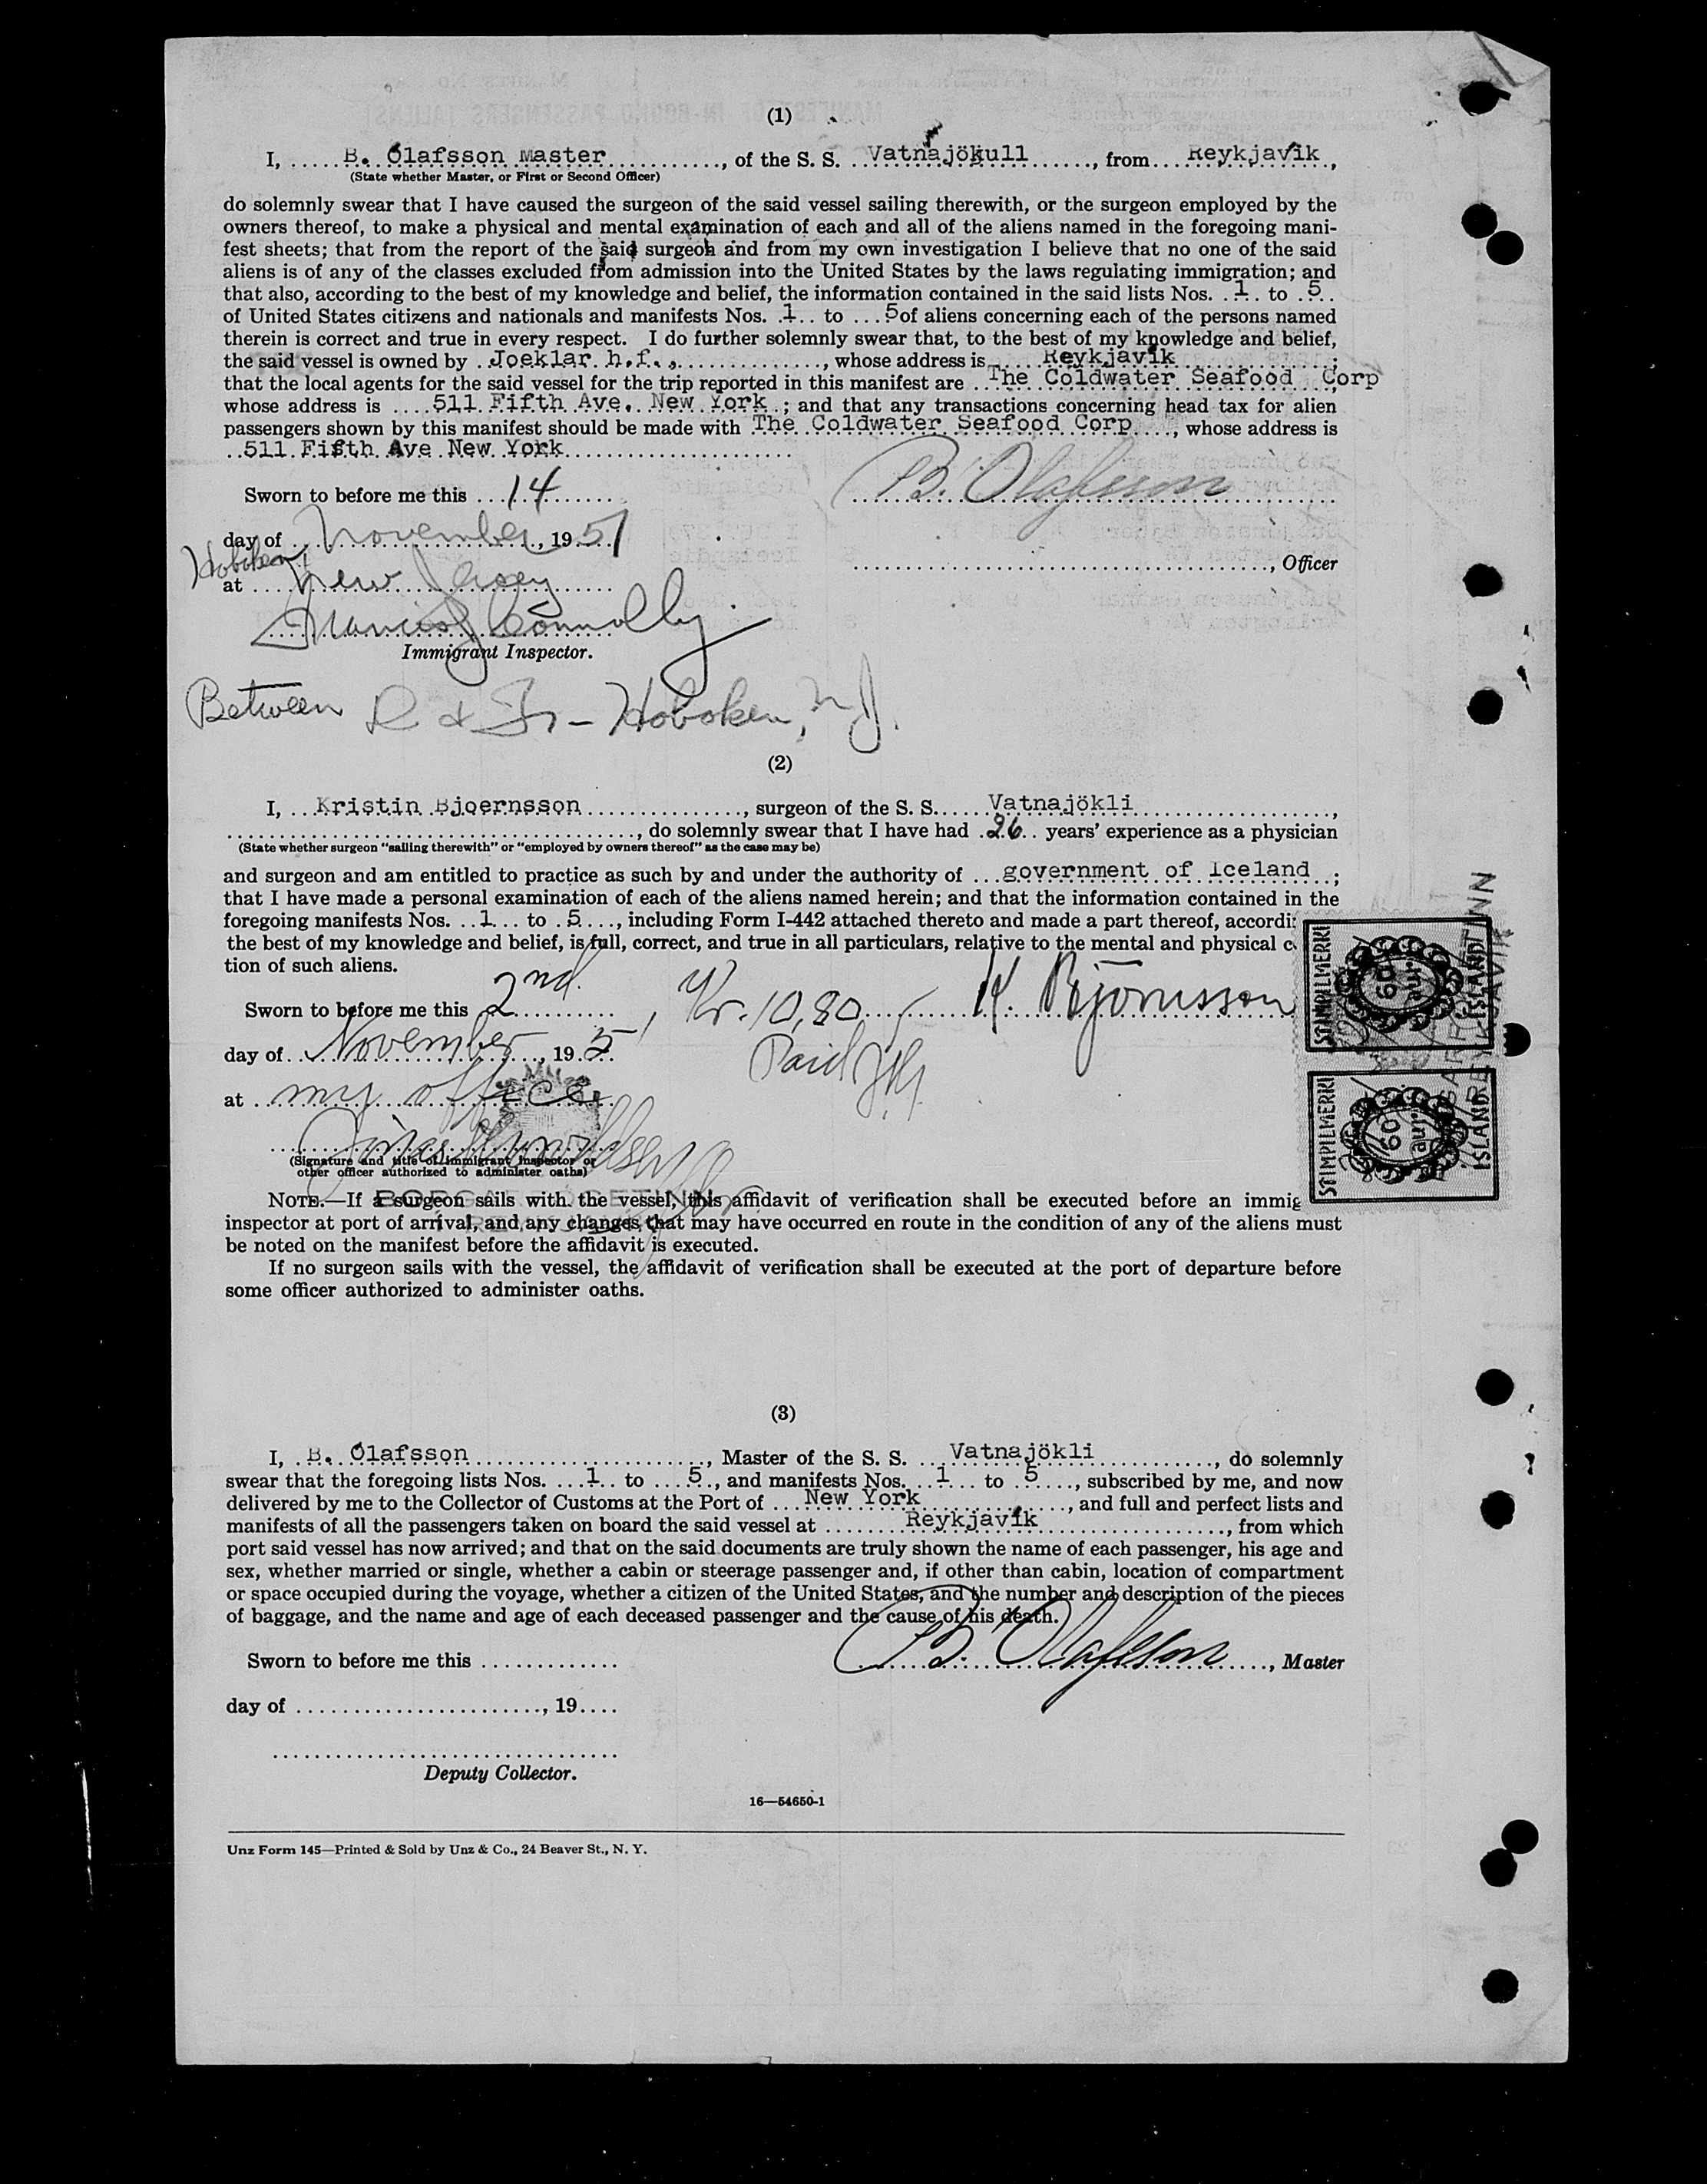 (1)
I, B. Ólafsson Master, of the S. S. Vatnajökull, from Reykjavík,
(State whether Master, or First or Second Officer)
do solemnly swear that I have caused the surgeon of the said vessel sailing therewith, or the surgeon employed by the
owners thereof, to make a physical and mental examination of each and all of the aliens named in the foregoing mani-
fest sheets; that from the report of the said surgeon and from my own investigation I believe that no one of the said
aliens is of any of the classes excluded from admission into the United States by the laws regulating immigration; and
that also, according to the best of my knowledge and belief, the information contained in the said lists Nos. 1 to 5
of United States citizens and nationals and manifests Nos. 1 to 5 of aliens concerning each of the persons named
therein is correct and true in every respect. I do further solemnly swear that, to the best of my knowledge and belief,
the said vessel is owned by Joeklar h.f., whose address is Reykjavík;
that the local agents for the said vessel for the trip reported in this manifest are The Coldwater Seafood Corp,
whose address is 511 Fifth Ave. New York; and that any transactions concerning head tax for alien
passengers shown by this manifest should be made with The Coldwater Seafood Corp, whose address is
511 Fifth Ave New York
Sworn to before me this 14 B. Olafsson
day of November, 1951
Hoboken, , Officer
at New Jersey
Francis J Connolly
Immigrant Inspector.
Between R & Jr - Hoboken, N.J.
(2)
I, Kristin Bjoernsson, surgeon of the S. S. Vatnajökli,
, do solemnly swear that I have had 26 years' experience as a physician
(State whether surgeon "sailing therewith" or "employed by owners thereof" as the case may be)
and surgeon and am entitled to practice as such by and under the authority of government of Iceland;
that I have made a personal examination of each of the aliens named herein; and that the information contained in the
foregoing manifests Nos. 1 to 5, including Form I-442 attached thereto and made a part thereof, accordi
the best of my knowledge and belief, is full, correct, and true in all particulars, relative to the mental and physical c
tion of such aliens.
Sworn to before me this 2nd. Kr. 10,80 K. Björnsson
day of November, 1951 Paid
at my office
(Signature and title of immigrant inspector or
other officer authorized to administer oaths)
STIMPILMERKI 60 aur. ÍSLAND
STIMPILMERKI 60 aur. ÍSLAND
NOTE.—If a surgeon sails with the vessel, this affidavit of verification shall be executed before an immig
inspector at port of arrival, and any changes that may have occurred en route in the condition of any of the aliens must
be noted on the manifest before the affidavit is executed.
If no surgeon sails with the vessel, the affidavit of verification shall be executed at the port of departure before
some officer authorized to administer oaths.
(3)
I, B. Ólafsson, Master of the S. S. Vatnajökli, do solemnly
swear that the foregoing lists Nos. 1 to 5, and manifests Nos. 1 to 5, subscribed by me, and now
delivered by me to the Collector of Customs at the Port of New York, and full and perfect lists and
manifests of all the passengers taken on board the said vessel at Reykjavík, from which
port said vessel has now arrived; and that on the said documents are truly shown the name of each passenger, his age and
sex, whether married or single, whether a cabin or steerage passenger and, if other than cabin, location of compartment
or space occupied during the voyage, whether a citizen of the United States, and the number and description of the pieces
of baggage, and the name and age of each deceased passenger and the cause of his death.
Sworn to before me this B. Olafsson, Master
day of , 19
Deputy Collector.
16—54650-1
Unz Form 145—Printed & Sold by Unz & Co., 24 Beaver St., N. Y.